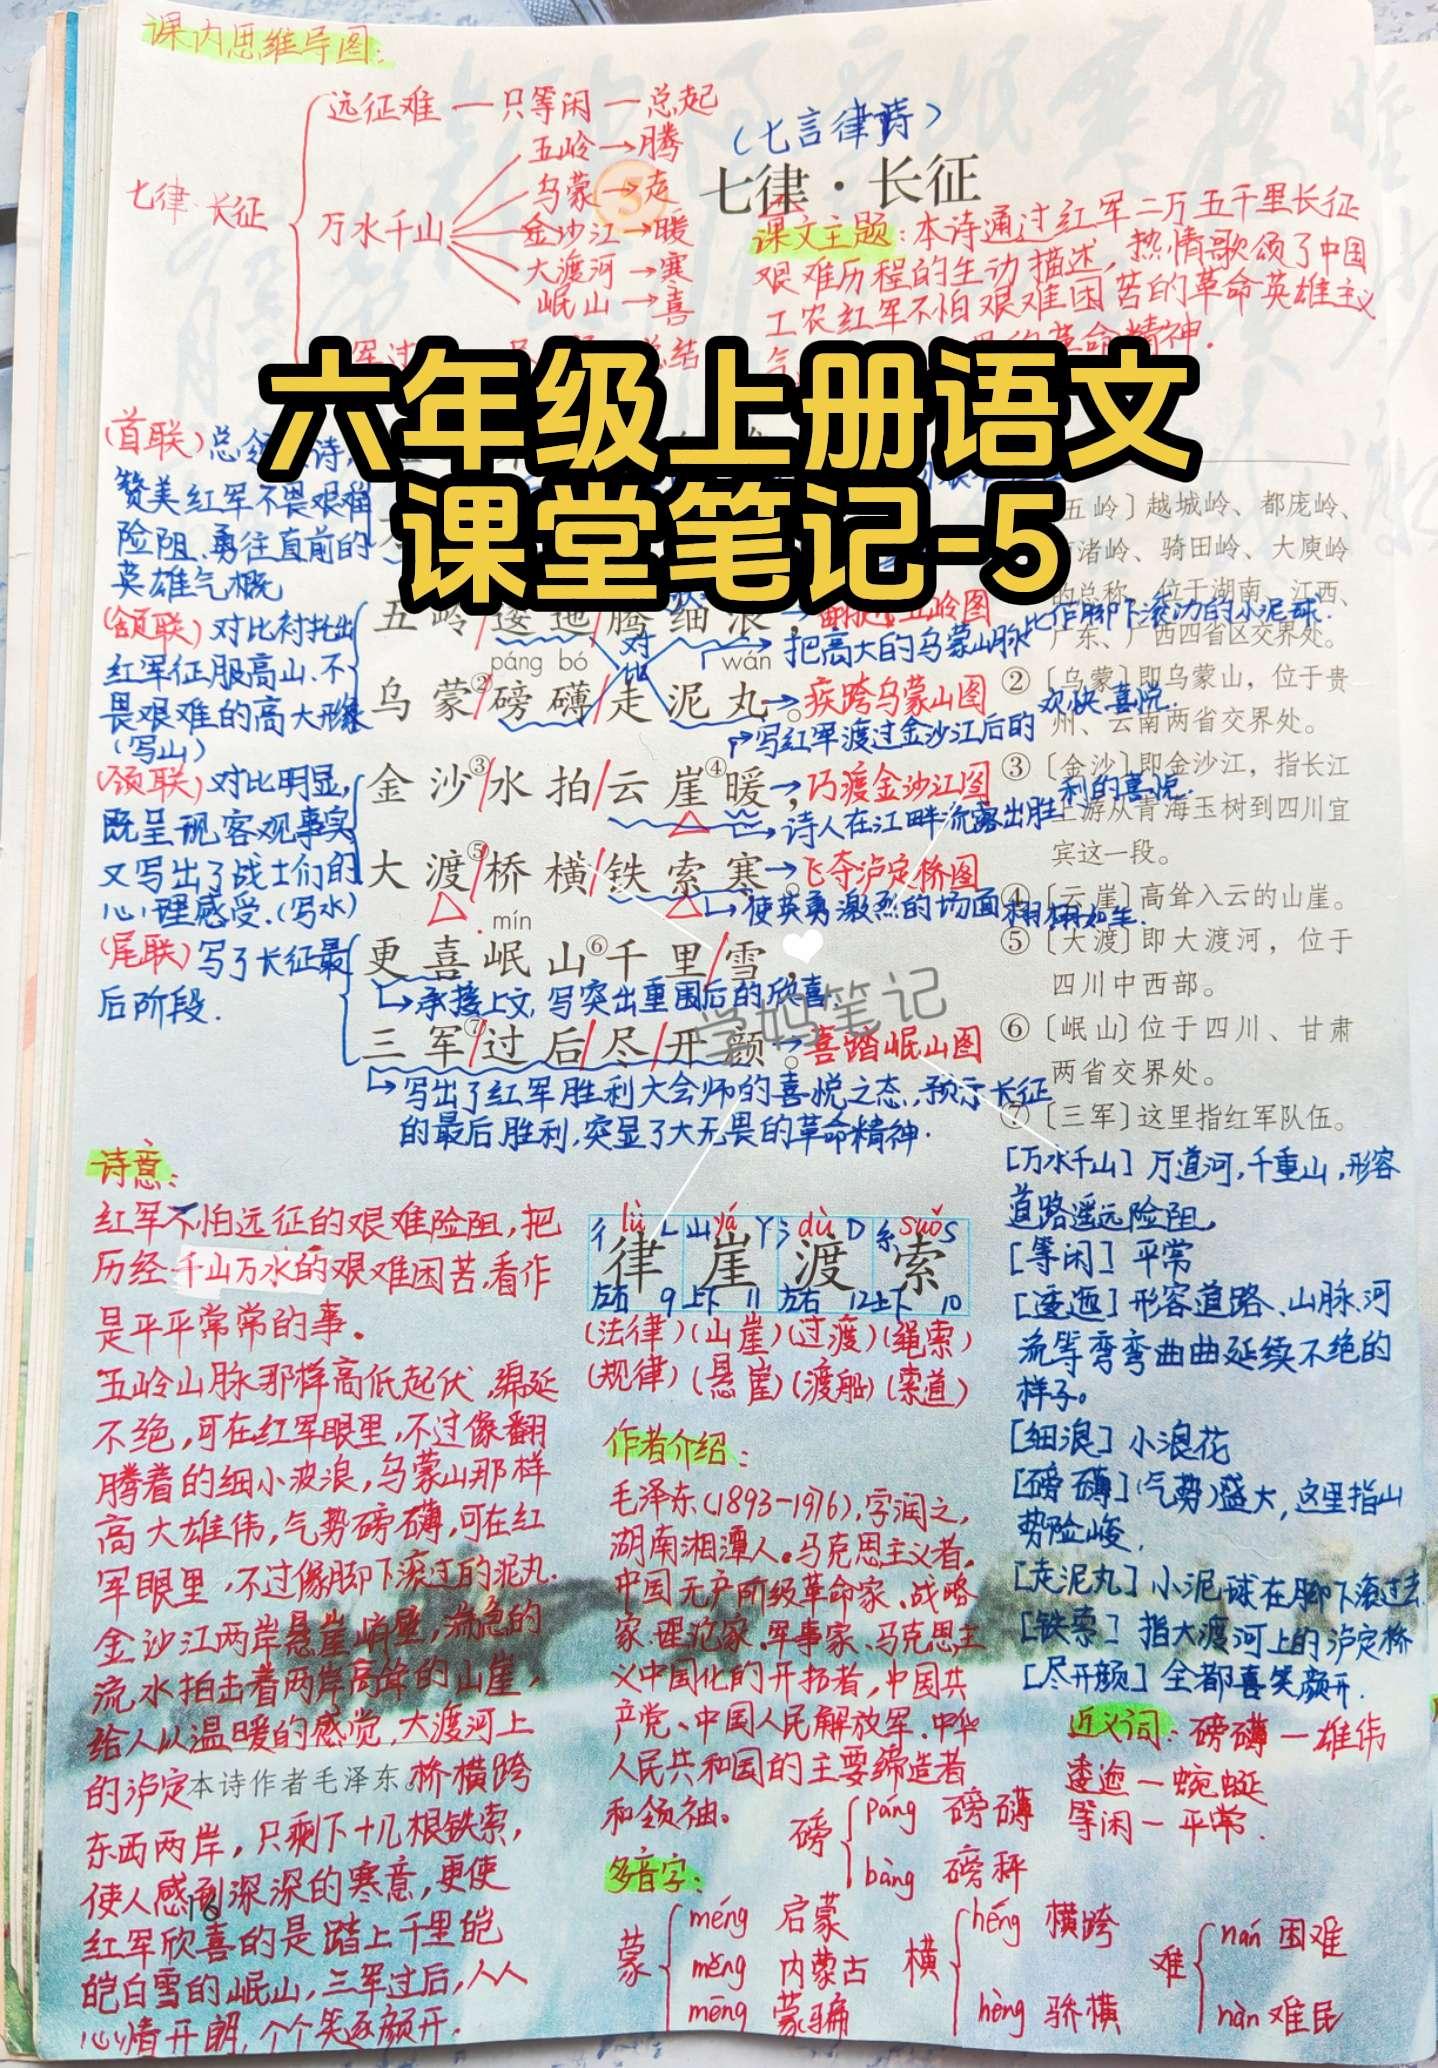 课内思维导图:
七律·长征
远征难 一只等闲 一总起
万水千山
五岭→腾
乌蒙→走
金沙江→暖
大渡河→寒
岷山→喜
总结
(七言律诗)
5 七律·长征
课文主题:本诗通过红军二万五千里长征
艰难历程的生动描述,热情歌颂了中国
工农红军不怕艰难困苦的革命英雄主义
革命精神.
六年级上册语文
课堂笔记-5
(首联)总
赞美红军不畏艰难
险阻、勇往直前的
英雄气概
(颔联)对比衬托出
红军征服高山、不
畏艰难的高大形象
(写山)
(颈联)对比明显,
既呈现客观事实
又写出了战士们的
心理感受.(写水)
(尾联)写了长征最
后阶段.
五岭逶迤腾细浪,
对比
把高大的乌蒙山脉比作脚下滚动的小泥球.
páng bó
wán
乌蒙②磅礴走泥丸。→疾跨乌蒙山图
写红军渡过金沙江后的欢快喜悦.
金沙③水拍云崖④暖,→巧渡金沙江图
诗人在江畔流露出胜利的喜悦.
大渡⑤桥横铁索寒。→飞夺泸定桥图
使英勇激烈的场面栩栩如生.
mín
更喜岷山⑥千里雪,
承接上文,写突出重围后的欣喜
三军⑦过后尽开颜。→喜踏岷山图
写出了红军胜利大会师的喜悦之态,预示长征
的最后胜利,突显了大无畏的革命精神.
学妈笔记
五岭〕越城岭、都庞岭、
渚岭、骑田岭、大庾岭
的总称,位于湖南、江西、
广东、广西四省区交界处。
②〔乌蒙〕即乌蒙山,位于贵
州、云南两省交界处。
③〔金沙〕即金沙江,指长江
上游从青海玉树到四川宜
宾这一段。
④〔云崖〕高耸入云的山崖。
⑤〔大渡〕即大渡河,位于
四川中西部。
⑥〔岷山〕位于四川、甘肃
两省交界处。
⑦〔三军〕这里指红军队伍。
[万水千山]万道河,千重山,形容
道路遥远险阻,
[等闲]平常
[逶迤]形容道路、山脉、河
流等弯弯曲曲延续不绝的
样子。
[细浪]小浪花
[磅礴](气势)盛大,这里指山
势险峻.
[走泥丸]小泥球在脚下滚过去
[铁索]指大渡河上的泸定桥
[尽开颜]全都喜笑颜开.
近义词:磅礴一雄伟
逶迤一蜿蜒
等闲一平常.
诗意:
红军不怕远征的艰难险阻,把
历经千山万水的艰难困苦,看作
是平平常常的事。
五岭山脉那样高低起伏,绵延
不绝,可在红军眼里,不过像翻
腾着的细小波浪,乌蒙山那样
高大雄伟,气势磅礴,可在红
军眼里,不过像脚下滚过的泥丸.
金沙江两岸悬崖峭壁,湍急的
流水拍击着两岸高耸的山崖,
给人以温暖的感觉,大渡河上
的泸定桥横跨
本诗作者毛泽东。
东西两岸,只剩下十几根铁索,
使人感到深深的寒意,更使
16
红军欣喜的是踏上千里皑
皑白雪的岷山,三军过后,人人
心情开朗,个个笑逐颜开.
彳 lǜ L 山 yá Y 氵 dù D 糸 suǒ S
律 崖 渡 索
左右 9 上下 11 左右 12 上下 10
(法律)(山崖)(过渡)(绳索)
(规律)(悬崖)(渡船)(索道)
作者介绍:
毛泽东(1893-1976),字润之,
湖南湘潭人。马克思主义者,
中国无产阶级革命家、战略
家、理论家、军事家、马克思主
义中国化的开拓者,中国共
产党、中国人民解放军、中华
人民共和国的主要缔造者
和领袖。
多音字:
磅 páng 磅礴
bàng 磅秤
蒙 méng 启蒙
měng 内蒙古
mēng 蒙骗
横 héng 横跨
hèng 骄横
难 nán 困难
nàn 难民